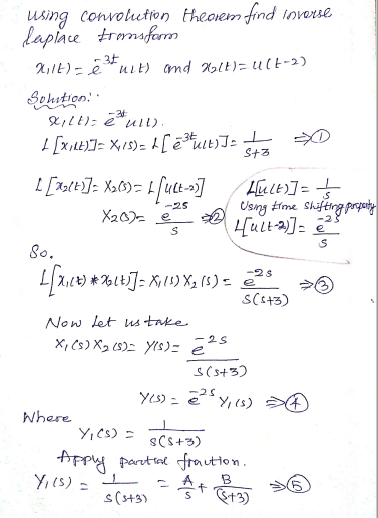 using convolution theorem find inverse
Laplace transform
x₁(t) = e^-3t u(t) and x₂(t) = u(t-2)
Solution:
x₁(t) = e^-3t u(t).
L[x₁(t)] = X₁(s) = L[e^-3t u(t)] = 1/(s+3) ⇒ ①
L[x₂(t)] = X₂(s) = L[u(t-2)]
X₂(s) = e^-2s/s ⇒ ②
L[u(t)] = 1/s
Using time shifting property
L[u(t-2)] = e^-2s/s
So.
L[x₁(t) * x₂(t)] = X₁(s) X₂(s) = e^-2s/s(s+3) ⇒ ③
Now let us take
X₁(s) X₂(s) = Y(s) = e^-2s/s(s+3)
Y(s) = e^-2s Y₁(s) ⇒ ④
Where
Y₁(s) = 1/s(s+3)
Apply partial fraction.
Y₁(s) = 1/s(s+3) = A/s + B/(s+3) ⇒ ⑤